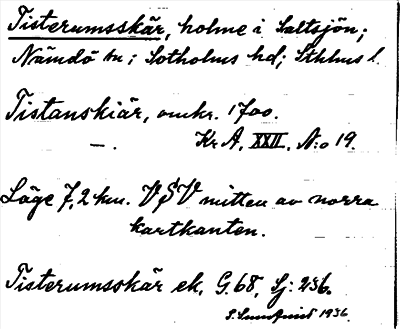 Tisterumsskär, holme i Saltsjön;
Nämdö sn; Sotholms hd; Sthlms l.
Tistanskiär, omkr. 1700.
—. Kr A, XXII, N:o 19.
Läge 7,2 km. VSV mitten av norra
kartkanten.
Tisterumsskär ek. G. 68, Sj: 236.
S. Sundqvist 1936.